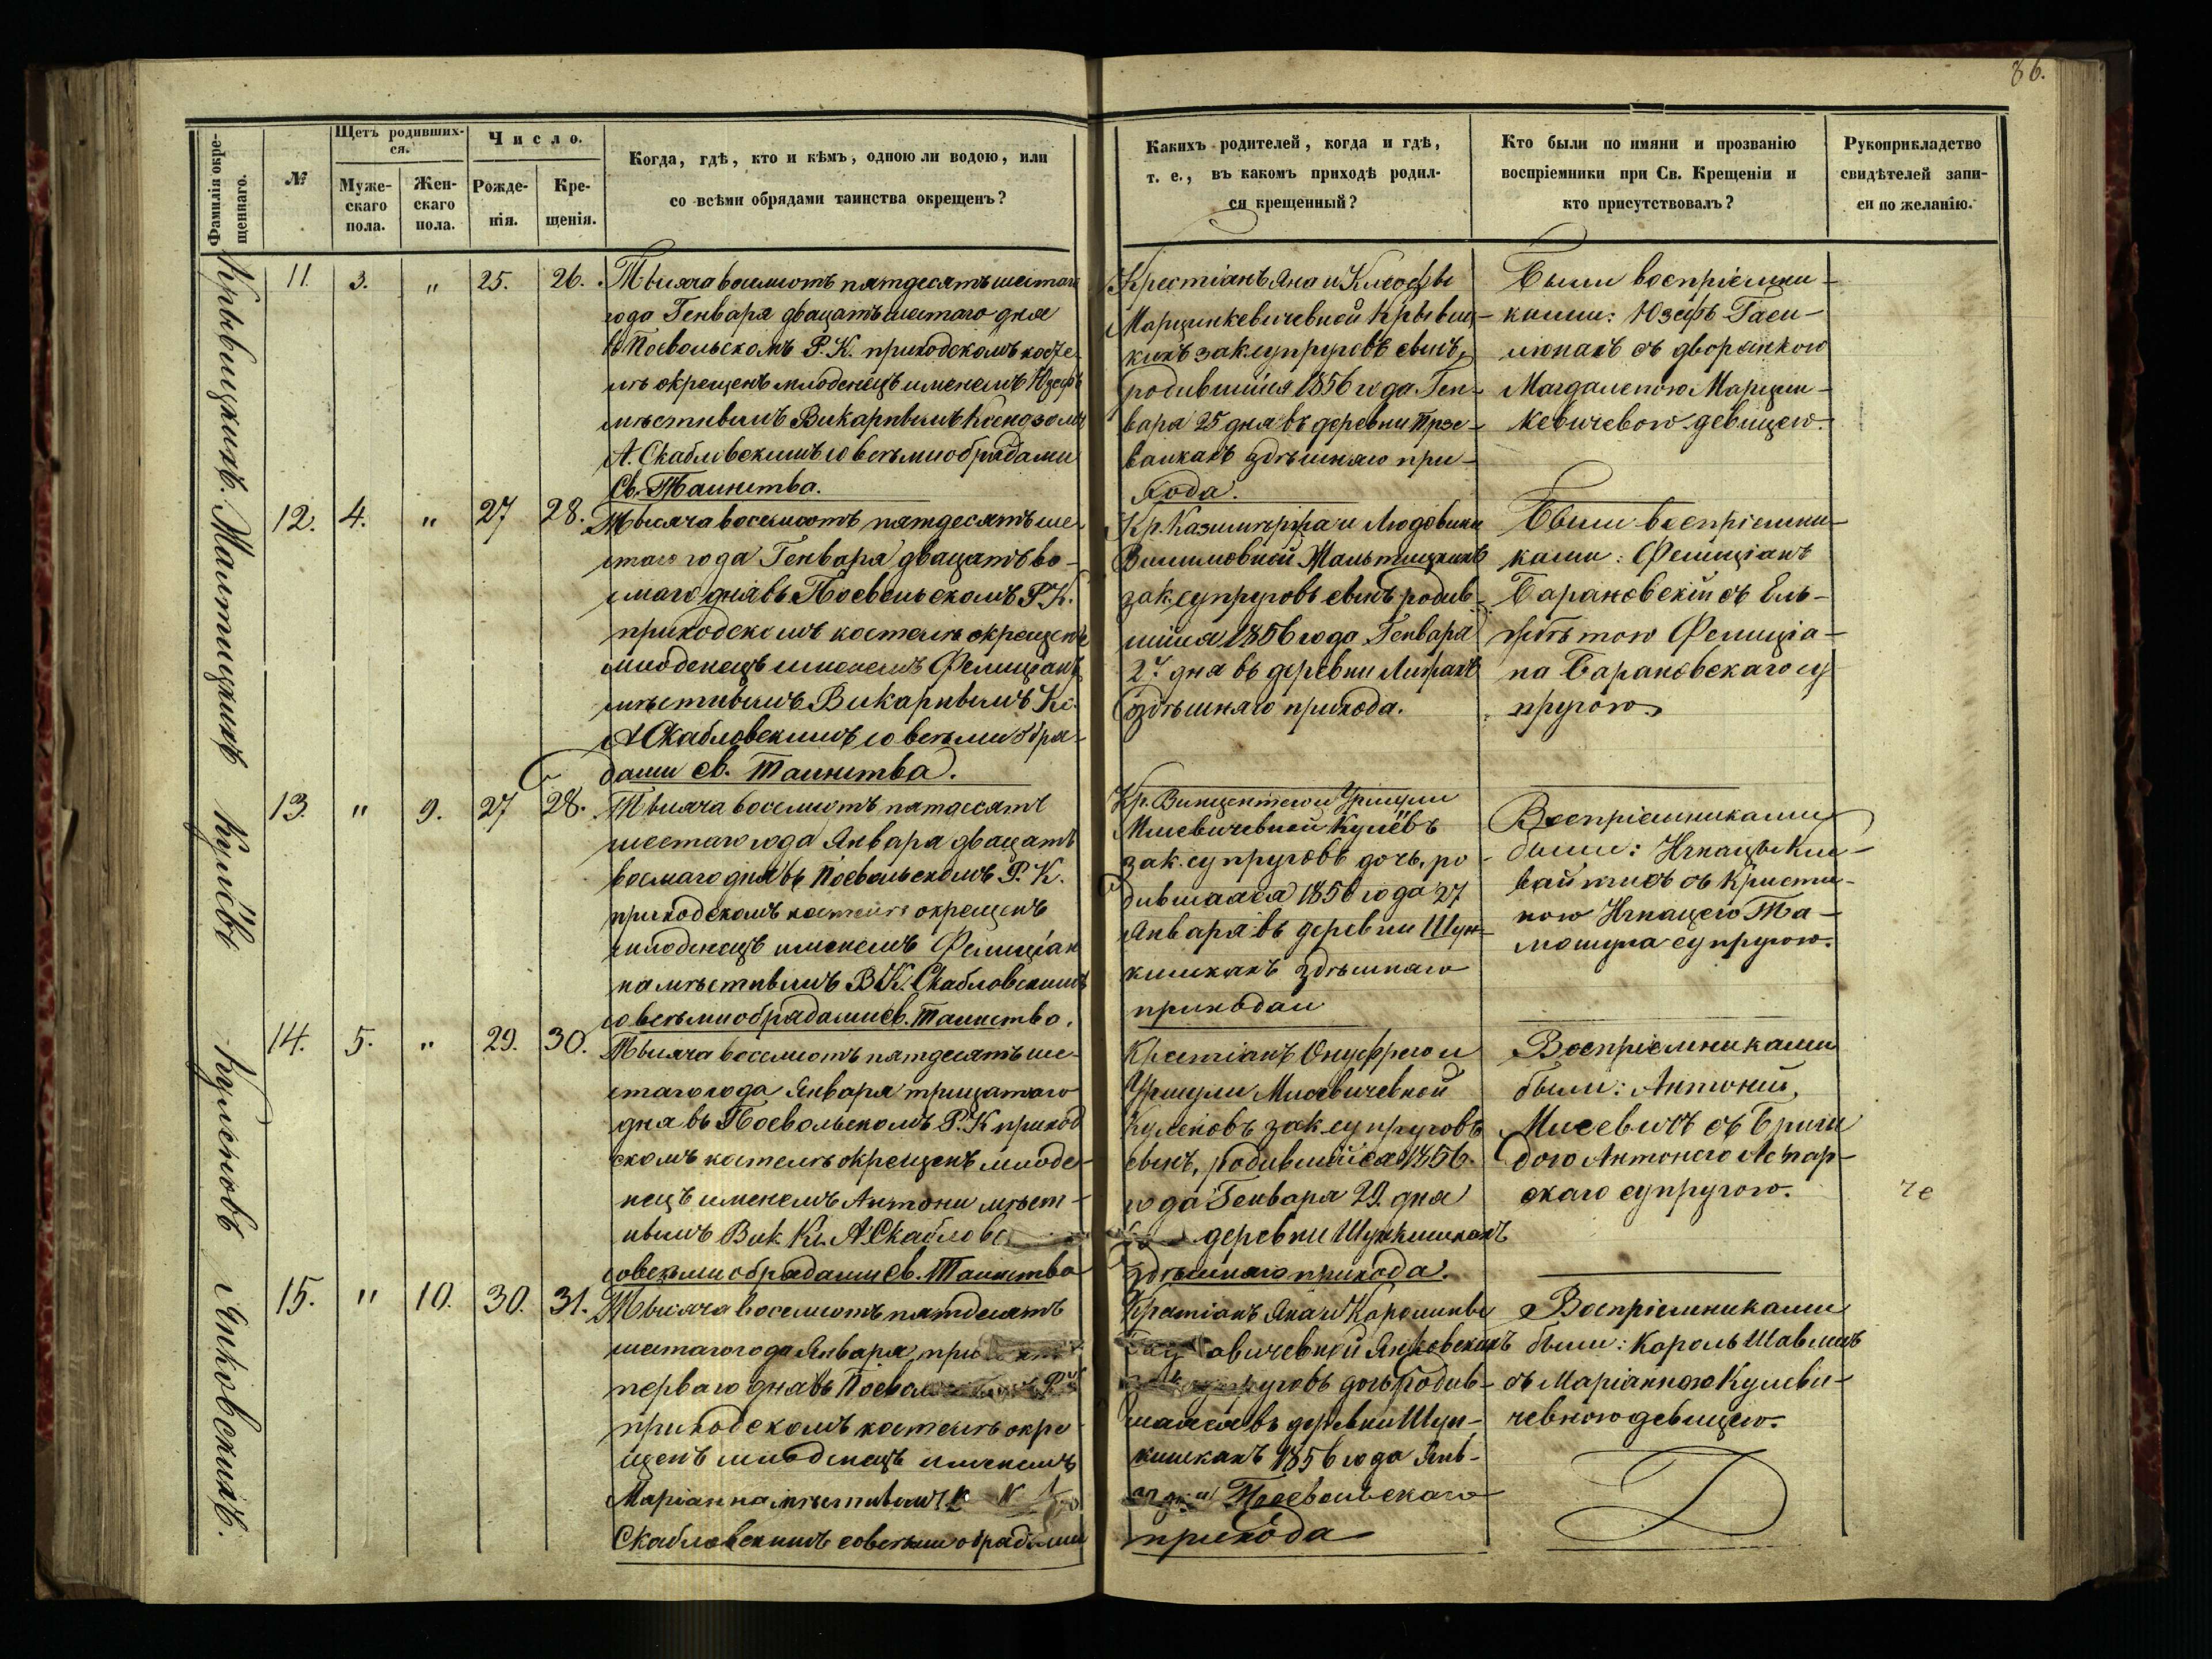 86.
Фамилія окре-
щеннаго.
№
Щетъ родивших-
ся.
Муже-
скаго
пола.
Жен-
скаго
пола.
Число.
Рожде-
нія.
Кре-
щенія.
Когда, гдѣ, кто и кѣмъ, одною ли водою, или
со всѣми обрядами таинства окрещенъ?
Какихъ родителей, когда и гдѣ,
т. е., въ какомъ приходѣ родил-
ся крещенный?
Кто были по имяни и прозванію
воспріемники при Св. Крещеніи и
кто присутствовалъ?
Рукоприкладство
свидѣтелей запи-
си по желанію.
Крывицкихъ.
11. 3. " 25. 26.
Тысяча восемсотъ пятдесятъ шестаго
года Генваря двацатъ шестаго дня
въ Посвольскомъ Р. К. приходскомъ косте-
лѣ окрещенъ младенецъ именемъ Юзефъ
мѣстнымъ Викарнымъ Ксендзомъ
А. Скабловскимъ со всѣми обрядами
Св. Таинства.
Крестіянъ Яна и
Марцинкевичевной Крывиц-
кихъ зак. супруговъ сынъ,
родившійся 1856 года Ген-
варя 25 дня въ деревни
здѣшняго при-
хода.
Были воспріемни-
ками: Юзефъ
съ дворянкою
Магдаленою Марцин-
кевичевою девицею.
Малтицкихъ
12. 4. " 27 28.
Тысяча восемсотъ пятдесятъ ше-
стаго года Генваря двацатъ во-
смаго дня въ Посвольскомъ Р. К.
приходскомъ костелѣ окрещенъ
младенецъ именемъ Фелиціанъ
мѣстнымъ Викарнымъ Кс.
А Скабловскимъ со всѣми обря-
дами св. Таинства.
Кр. Казимѣра и Людовики
Мальтицкихъ
зак. супруговъ сынъ родив-
шійся 1856 года Генваря
27 дня въ деревни
здѣшняго прихода.
Были воспріемни-
ками: Фелиціанъ
Барановскій съ Ель-
жбѣтою Фелиціа-
на Барановскаго су-
пругою.
Кулёвъ
13. " 9. 27 28.
Тысяча восемсотъ пятдесятъ
шестаго года Января двацатъ
восмаго дня въ Посвольскомъ Р. К.
приходскомъ костелѣ окрещенъ
младенецъ именемъ Фелиціан
на мѣстнымъ В К. Скабловскимъ
со всѣми обрядами св. Таинства.
Кр. Винцентего и Уршули
Мисевичевной Кулёвъ
зак. супруговъ дочь, ро-
дившаяся 1856 года 27
Января въ деревни Шун-
кишкахъ здѣшняго
прихода
Воспріемниками
были: Игнацы
съ Кристи-
ною Игнацего
супругою.
Куленовъ
14. 5. " 29. 30.
Тысяча восемсотъ пятдесятъ ше-
стаго года Января трицатаго
дня въ Посвольскомъ Р. К приход
скомъ костелѣ окрещенъ младе-
нецъ именемъ Антони мѣст-
нымъ Вик. Кс. А. Скаблов
со всѣми обрядами Св. Таинства
Крестіянъ Онуфрего и
Уршули Мисевичевной
Куленовъ зак. супруговъ
сынъ, родившійся 1856.
года Генваря 29. дня
деревни Шункишкахъ
здѣшняго прихода.
Воспріемниками
были: Антоній
Мисевичъ съ Бриги
дою Антонего
супругою.
Янковскихъ.
15. " 10. 30. 31.
Тысяча восемсотъ пятдесятъ
шестаго года Января
перваго дня въ Посвол
приходскомъ костелѣ окре
щенъ младенецъ именемъ
Маріанна мѣстнымъ
Скабловскимъ со всѣми обрядами
Крестіянъ Яна и Каролины
Янковскихъ
дочь родив-
шаяся въ деревни Шун-
кишкахъ 1856 года Янв-
Посвольскаго
прихода
Воспріемниками
были: Кароль
съ Маріанною Кулеви-
чевною девицею.